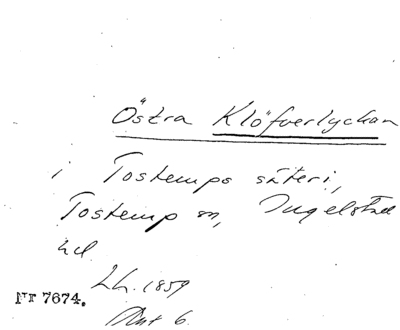 Östra Klöfverlyckan
i Tostemps säteri,
Tostemp sn, Ingelstad
hd
LL. 1859
Nr 7674.
Akt 6